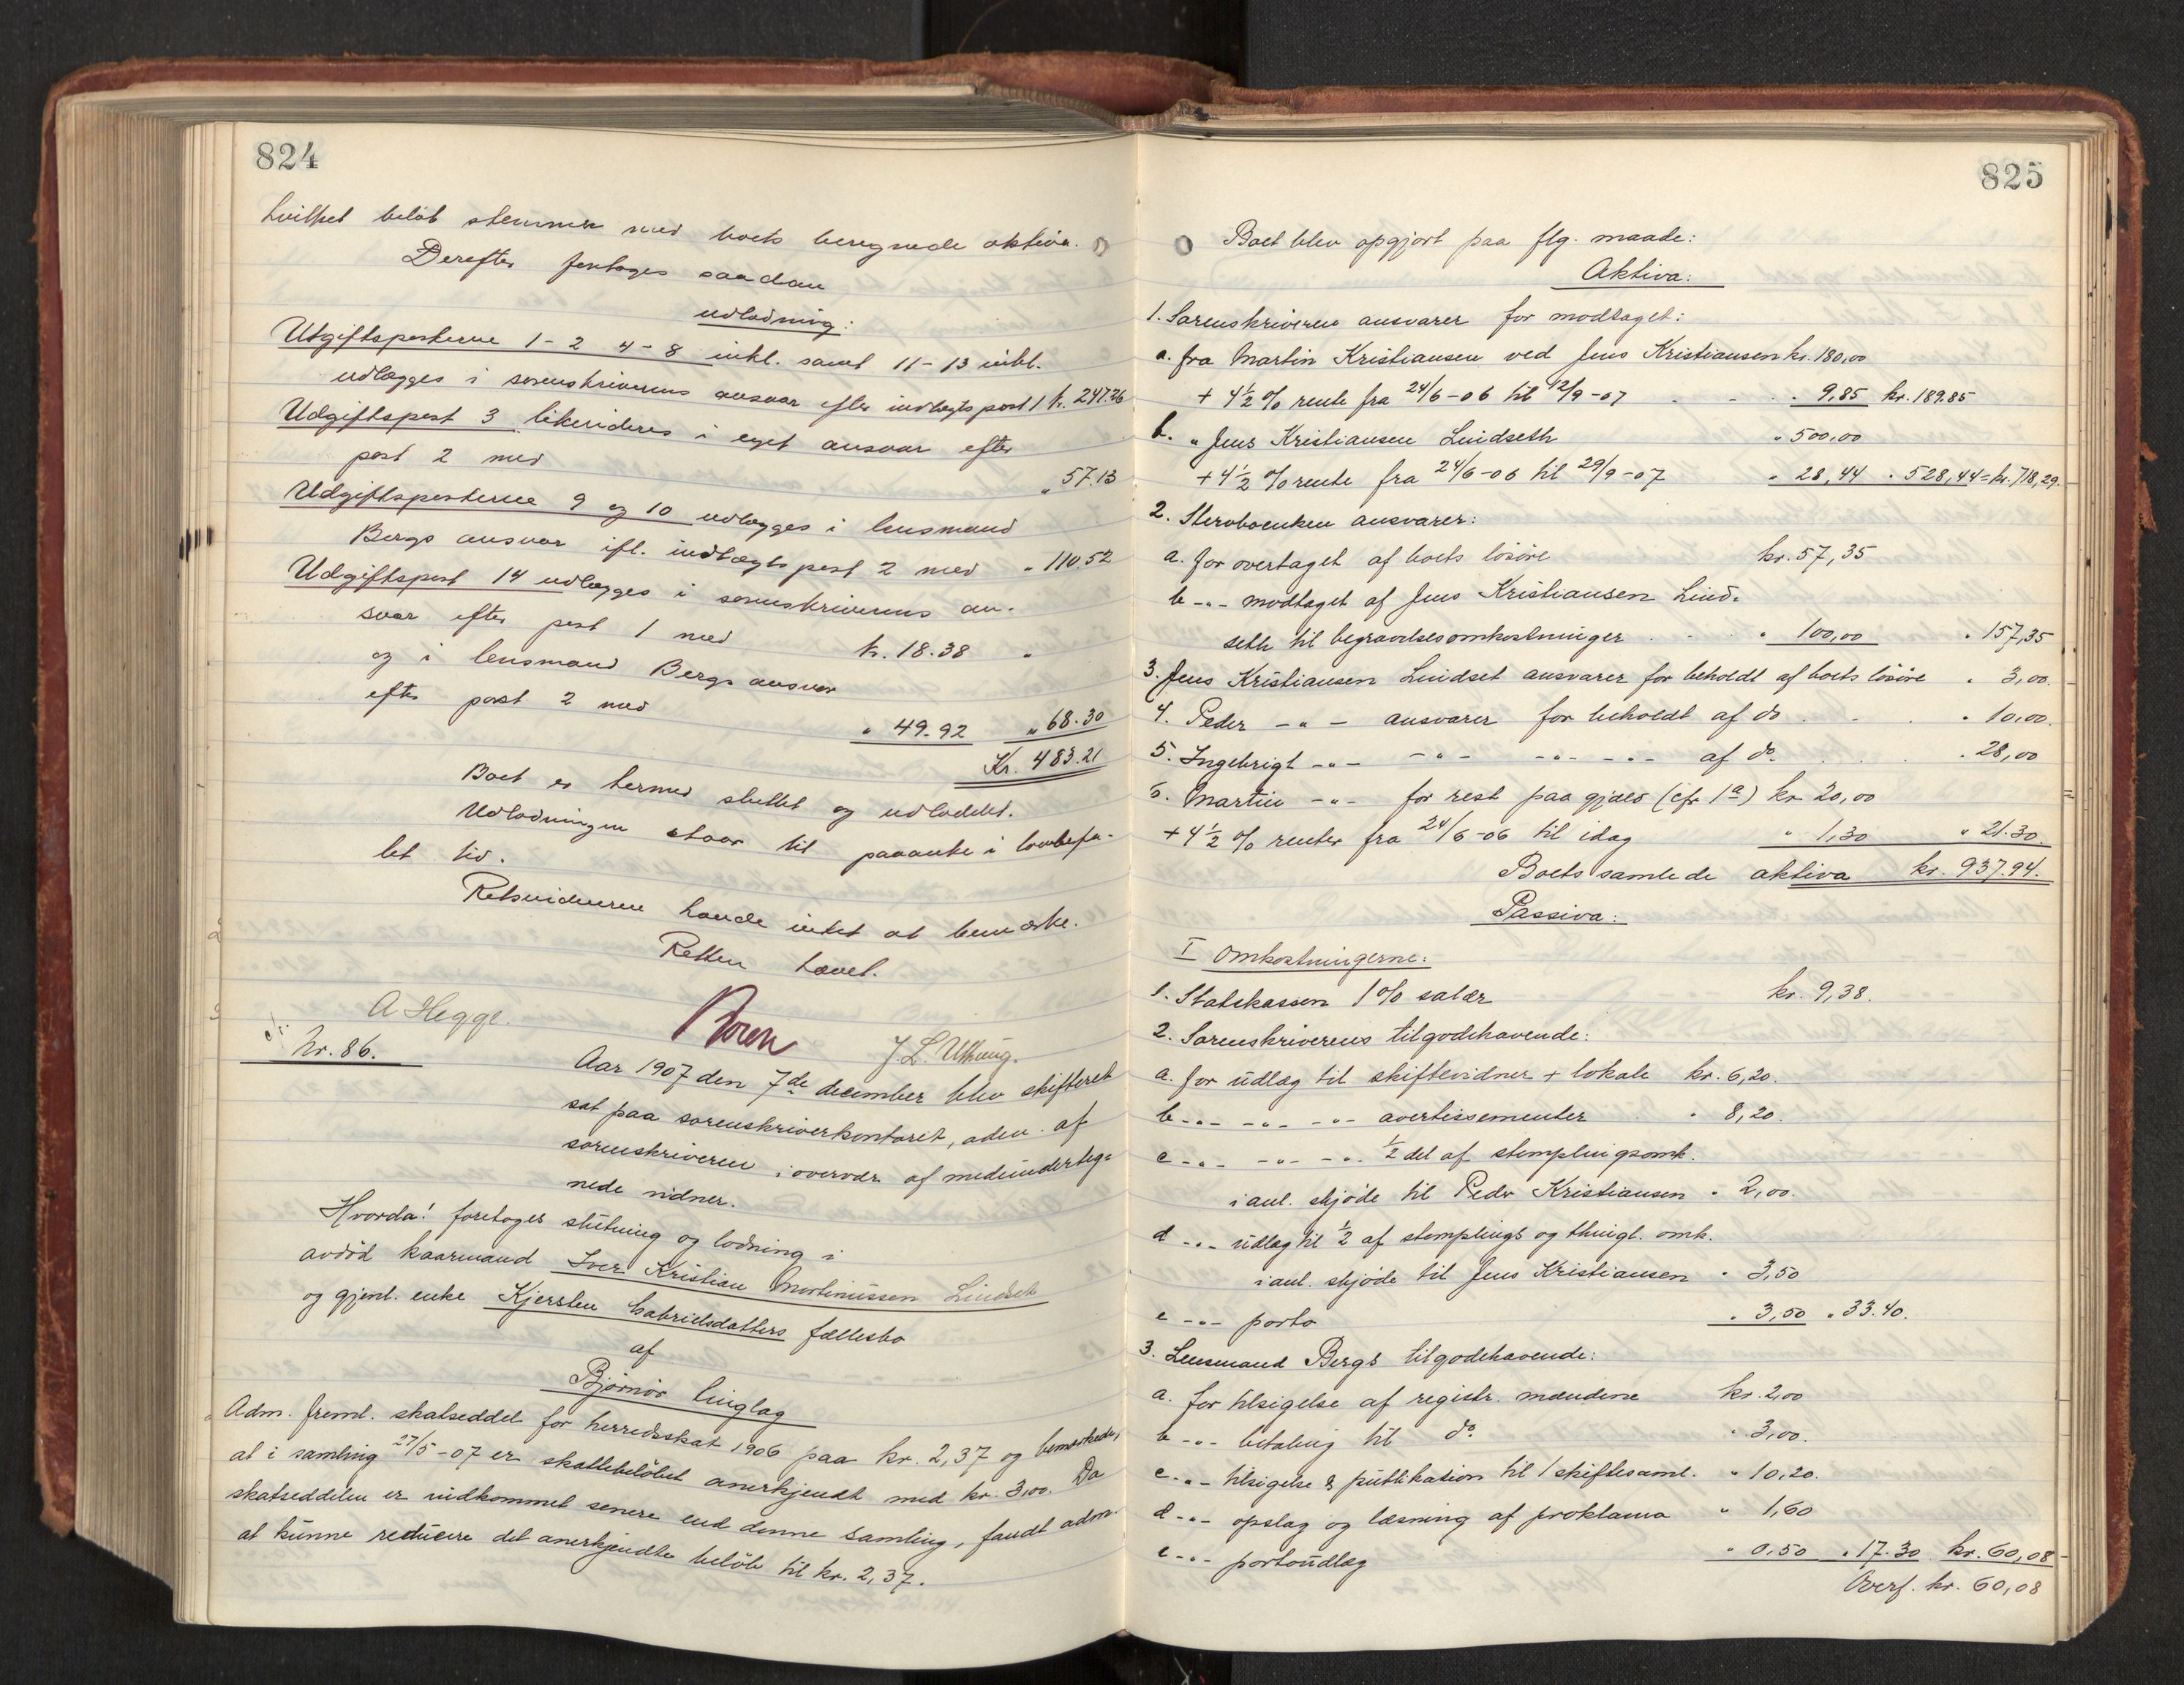 824
hvilket beløb stemmer med boets beregnede aktiva.
Derefter foretages saadan
udlodning:
Utgiftsposterne 1-2 4-8 inkl. samt 11-13 inkl.
udlægges i sorenskriverens ansvar efter indtægtspost 1 k. 247.26
Udgiftspost 3 likvideres i eget ansvar efter
post 2 med " 57.13
Udgiftsposterne 9 og 10 udlægges i lensmand
Bergs ansvar ifl. indtægtspost 2 med " 110.52
Udgiftspost 14 udlægges i sorenskriverens an-
svar efter post 1 med k. 18.38 "
og i lensmand Bergs ansvar
efter post 2 med " 49.92 " 68.30
Kr. 483.21
Boet er hermed sluttet og udloddet.
Udlodningen staar til paaanke i lovbefa-
let tid.
Retsvidnerne havde intet at bemærke.
Retten hævet.
A Hegge.
J. L. Uthaug.
Nr. 86.
Aar 1907 den 7de december blev skifteret
sat paa sorenskriverkontoret, adm. af
sorenskriveren i overvær af medunderteg-
nede vidner.
Hvorda! foretoges slutning og lodning i
avdød kaarmand Iver Kristian Mortinussen Lindset
og gjenl. enke Kjersten Gabrielsdatters fællesbo
af
Bjørnør tinglag
Adm. freml. skatseddel for herredsskat 1906 paa kr. 2,37 og bemærkede,
at i samling 27/5-07 er skattebeløbet anerkjendt med kr. 3,00. Da
skatseddelen er indkommet senere end denne samling, fandt adm.
at kunne reducere det anerkjendte beløb til kr. 2,37.
825
Boet blev opgjort paa flg. maade:
Aktiva:
1. Sorenskriveren ansvarer for modtaget:
a. fra Martin Kristiansen ved Jens Kristiansen kr. 180,00
+ 4½ % rente fra 24/6-06 til 12/9-07 . . . 9,85 kr. 189.85
b. " Jens Kristiansen Lindseth " 500,00
+ 4½ % rente fra 24/6-06 til 29/9-07 " 28,44 " 528,44 = kr. 718,29.
2. Stervboenken ansvarer:
a. for overtaget af boets løsøre kr. 57,35
b -"- modtaget af Jens Kristiansen Lind-
seth til begravelsesomkostninger . . " 100,00 " 157,35
3. Jens Kristiansen Lindset ansvarer for beholdt af boets løsøre " 3,00.
4. Peder -"- ansvarer for beholdt af do . . . " 10,00.
5. Ingebrigt -"- -"- -"- -"- af do . . . " 28,00
6. Martin -"- for rest paa gjæld (cfr 1a) kr 20,00
+ 4½ % renter fra 24/6-06 til idag " 1,30 " 21.30.
Boets samlede aktiva kr. 937.94.
Passiva:
I Omkostningerne:
1. Statskassen 1% salær kr. 9,38.
2. Sorenskriverens tilgodehavende:
a. for udlæg til skiftevidner + lokale kr. 6,20.
b -"- -"- -"- avertissementer . . " 8,20.
c -"- -"- -"- ½ del af stemplingsomk.
i anl. skjøde til Peder Kristiansen " 2,00.
d -"- udlæg til ½ af stemplings og thingl. omk.
i anl. skjøde til Jens Kristiansen " 3,50
e -"- porto " 3,50 " 33.40.
3. Lensmand Bergs tilgodehavende:
a. for tilsigelse af registr. mændene kr. 2,00
b -"- betaling til do " 3,00.
c -"- tilsigelse & publikation til 1 skiftesaml. " 10,20.
d -"- opslag og læsning af proklama " 1,60
e -"- portoudlæg " 0,50 " 17.30 kr. 60,08
Overf. kr. 60,08